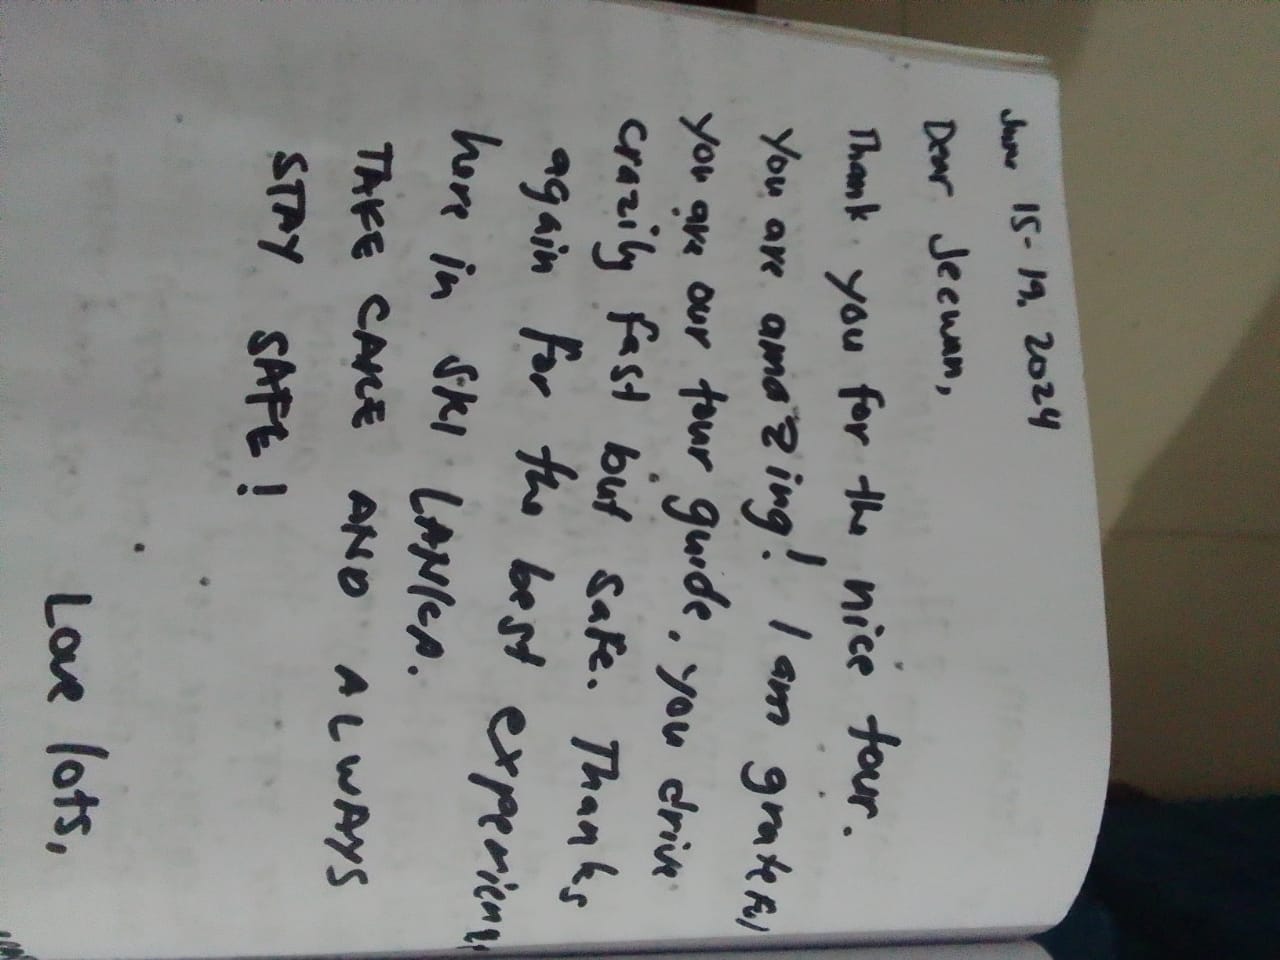 June 15-19, 2024
Dear Jeewan,
Thank you for the nice tour.
You are amazing! I am grateful
you are our tour guide. you drive
crazily fast but safe. Thanks
again for the best experience
here in SRI LANKA.
TAKE CARE AND ALWAYS
STAY SAFE!
Love lots,